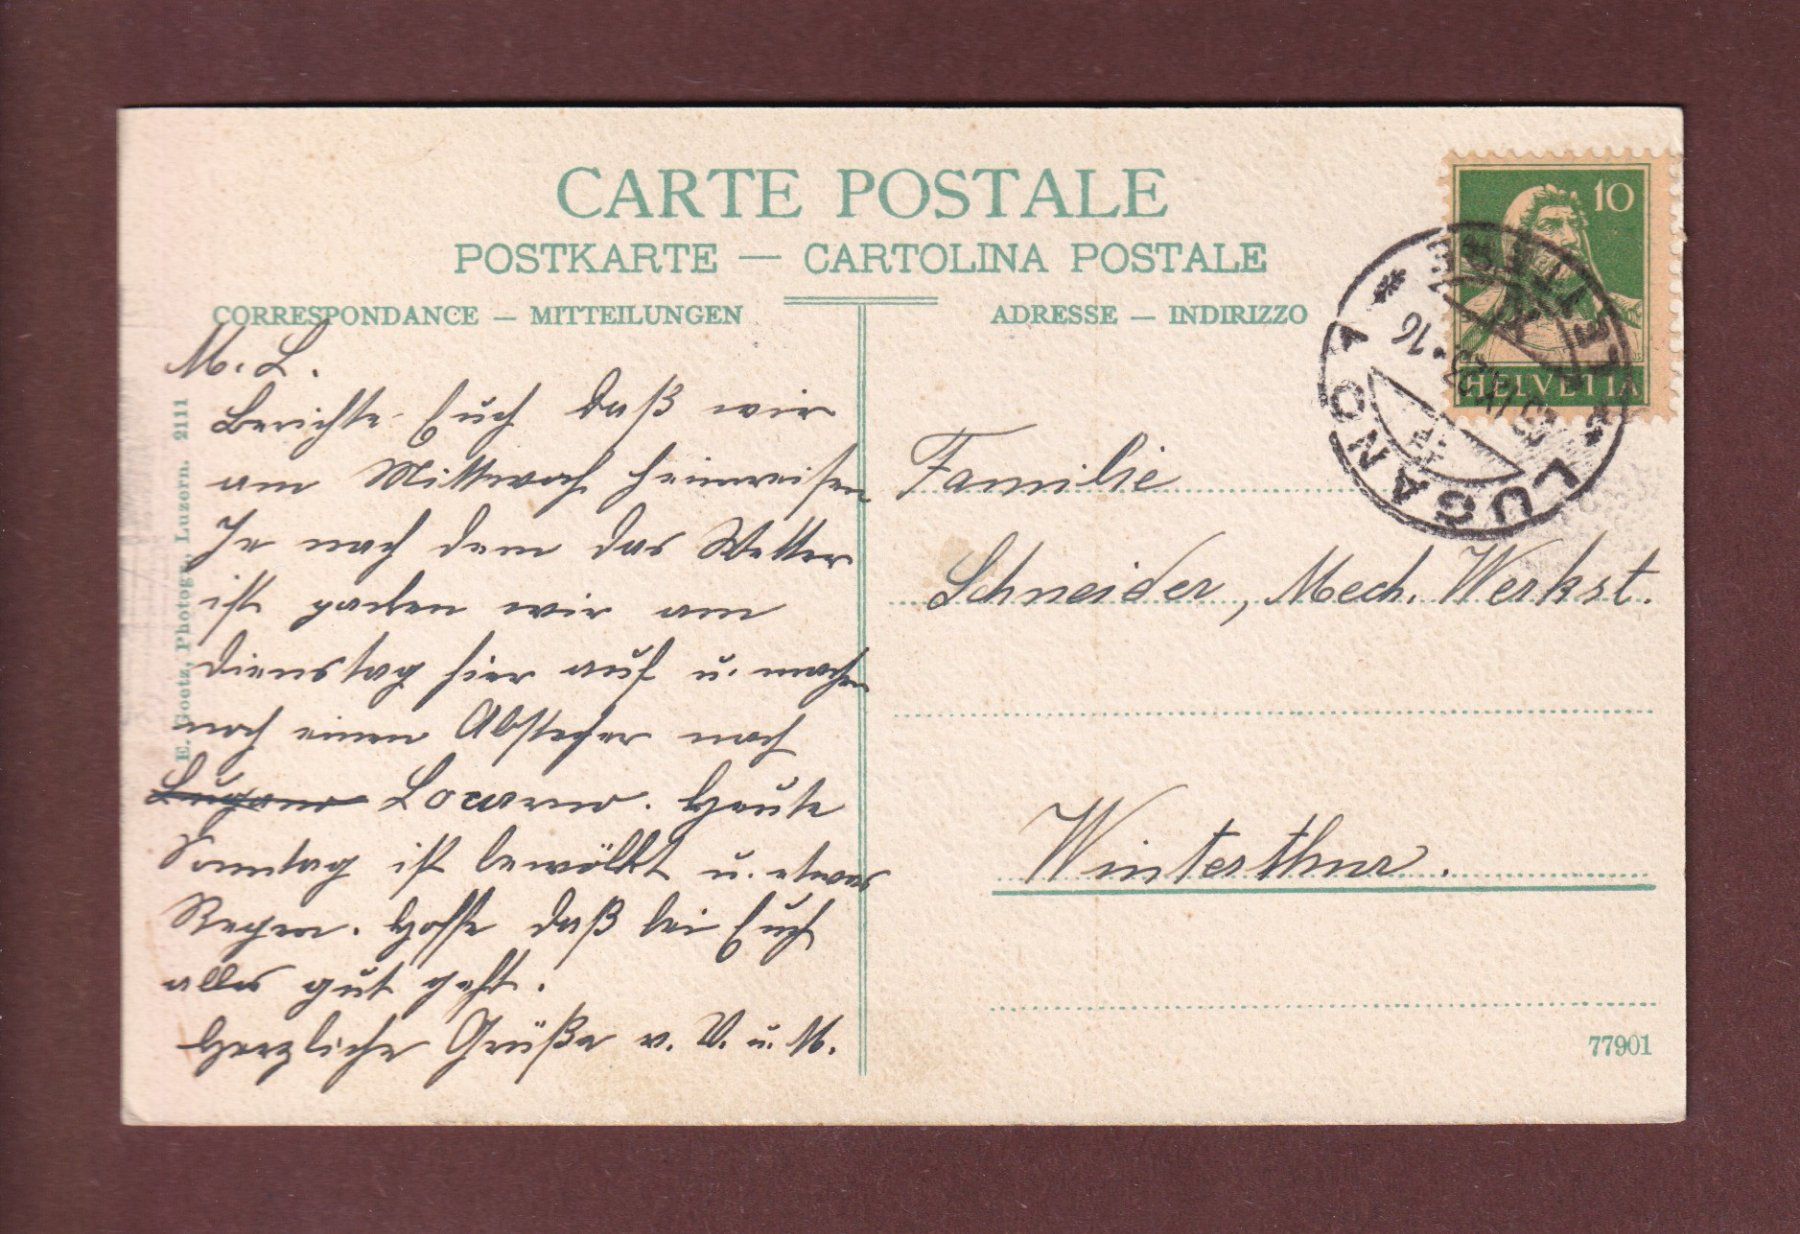 CARTE POSTALE
POSTKARTE — CARTOLINA POSTALE
CORRESPONDANCE — MITTEILUNGEN
ADRESSE — INDIRIZZO
M. L.
Berichte Euch daß wir
am Mittwoch heimreisen
Je nach dem das Wetter
ist packen wir am
Dienstag hier auf u. machen
noch einen Abstecher nach
Lugano Locarno. Heute
Sonntag ist bewölkt u. etwas
Regen. Hoffe daß bei Euch
alles gut geht.
Herzliche Grüße v. V. u. M.
E. Goetz, Photogr., Luzern. 2111
10
HELVETIA
LUGANO 1
16
Familie
Schneider, Mech. Werkst.
Winterthur.
77901